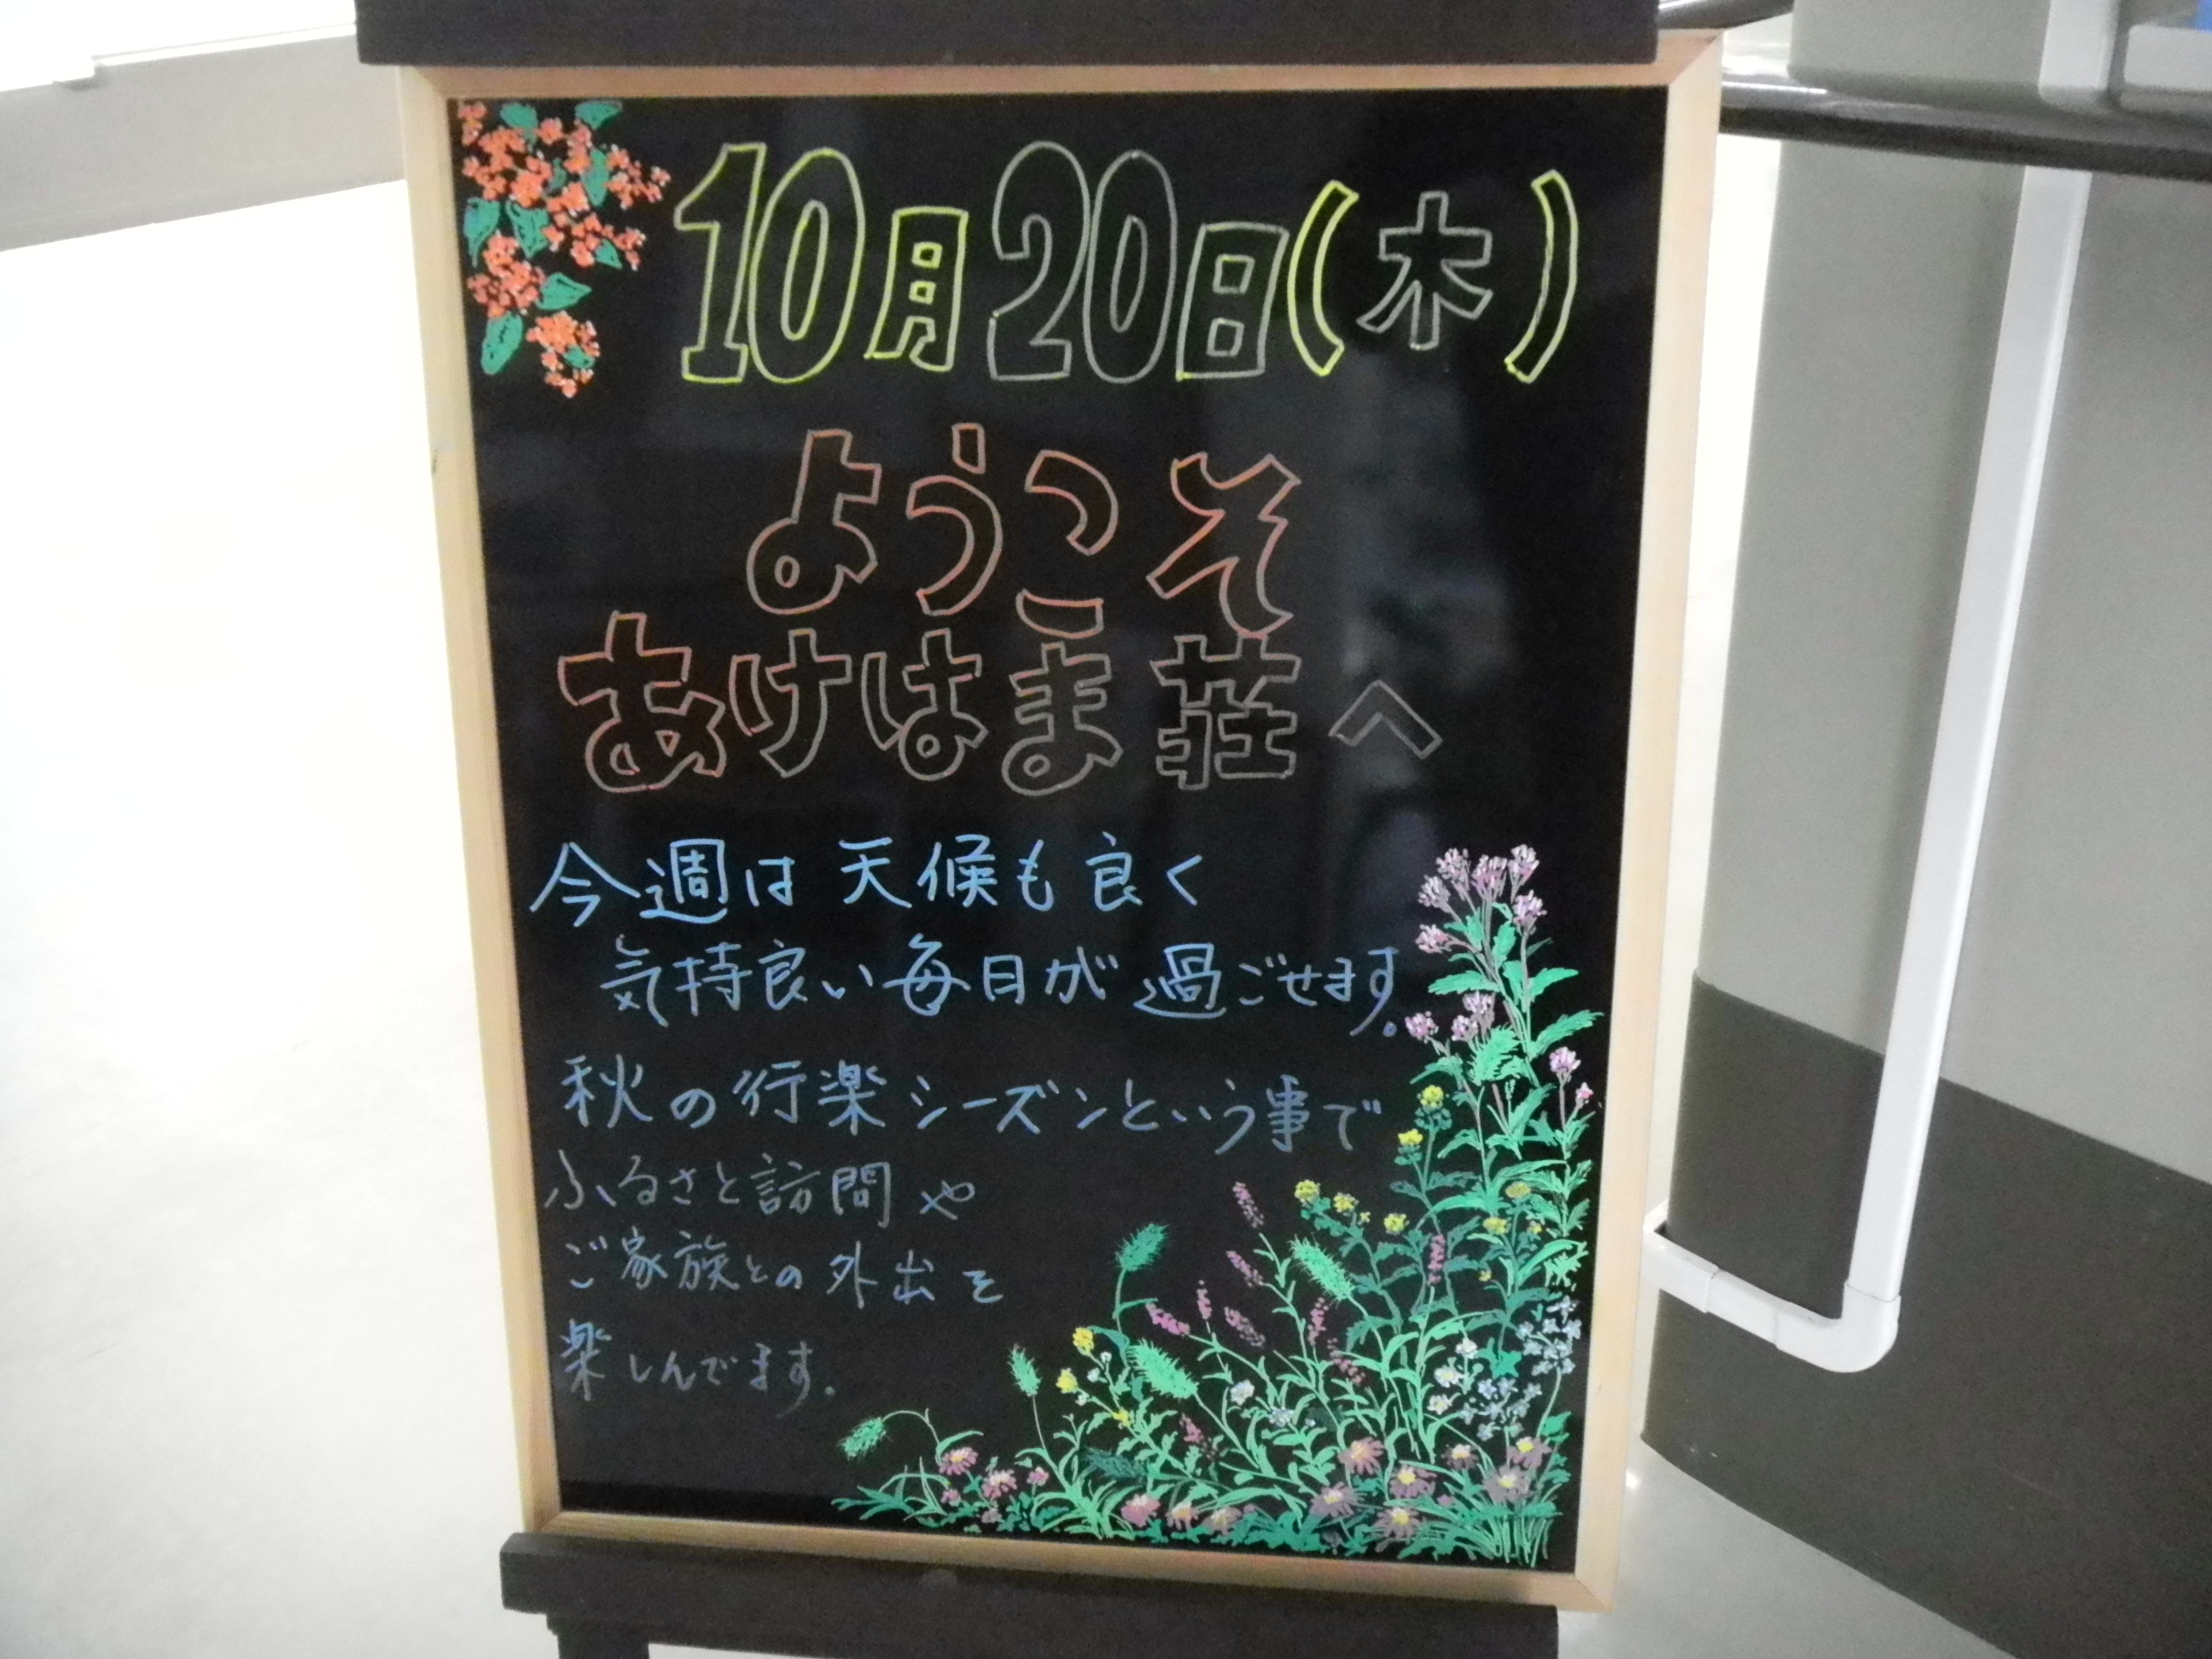 10月20日(木)
ようこそ
あけはま荘へ
今週は天候も良く
気持良い毎日が過ごせます。
秋の行楽シーズンという事で
ふるさと訪問や
ご家族との外出を
楽しんでます。